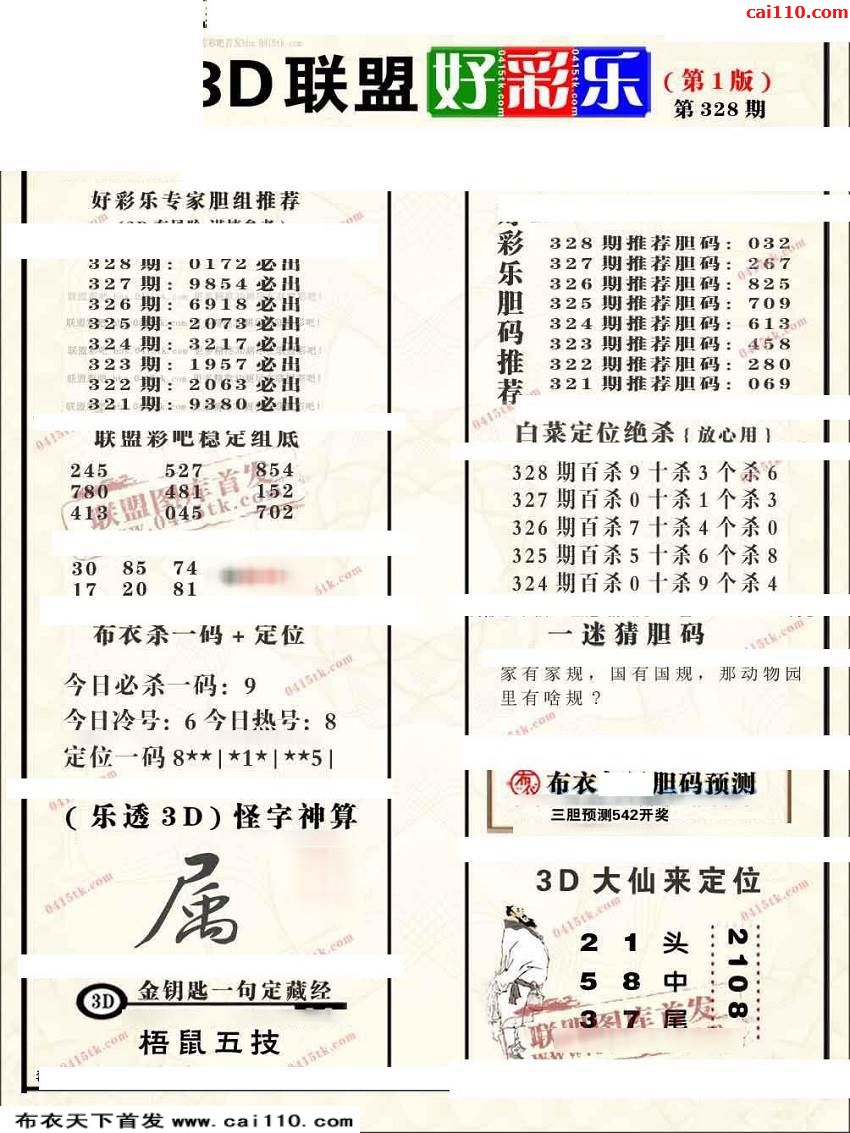 cai110.com
3D联盟好彩乐
(第1版)
第328期
好彩乐专家胆组推荐
328期：0172必出
327期：9854必出
326期：6918必出
325期：2073必出
324期：3217必出
323期：1957必出
322期：2063必出
321期：9380必出
联盟彩吧稳定组底
245 527 854
780 481 152
413 045 702
30 85 74
17 20 81
布衣杀一码+定位
今日必杀一码：9
今日冷号：6 今日热号：8
定位一码8**|*1*|**5|
(乐透3D)怪字神算
属
3D 金钥匙一句定藏经
梧鼠五技
彩乐胆码推荐
328期推荐胆码：032
327期推荐胆码：267
326期推荐胆码：825
325期推荐胆码：709
324期推荐胆码：613
323期推荐胆码：458
322期推荐胆码：280
321期推荐胆码：069
白菜定位绝杀{放心用}
328期百杀9十杀3个杀6
327期百杀0十杀1个杀3
326期百杀7十杀4个杀0
325期百杀5十杀6个杀8
324期百杀0十杀9个杀4
一迷猜胆码
家有家规，国有国规，那动物园
里有啥规？
布衣 胆码预测
三胆预测542开奖
3D大仙来定位
2 1 头
5 8 中
3 7 尾
2108
联盟图库首发
www.0415tk.com
布衣天下首发 www.cai110.com